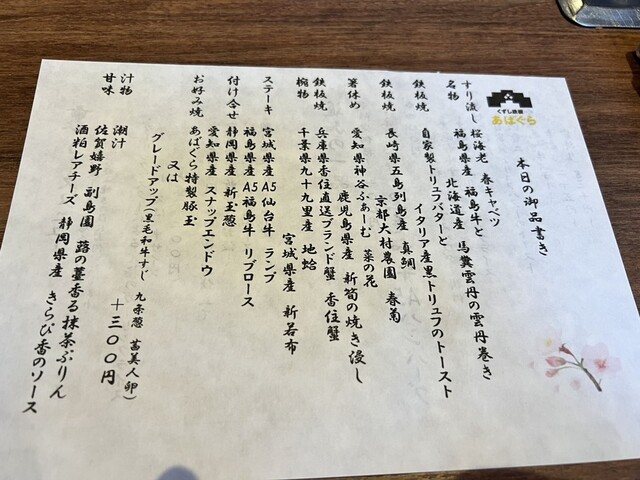 くずし鉄板
あばぐら
本日の御品書き
すり流し 桜海老 春キャベツ
名物 福島県産 福島牛と
北海道産 馬糞雲丹の雲丹巻き
鉄板焼 自家製トリュフバターと
イタリア産黒トリュフのトースト
鉄板焼 長崎県五島列島産 真鯛
京都大村農園 春菊
箸休め 愛知県神谷ふぁーむ 菜の花
鹿児島県産 新筍の焼き浸し
鉄板焼 兵庫県香住直送ブランド蟹 香住蟹
椀物 千葉県九十九里産 地蛤
宮城県産 新若布
ステーキ 宮城県産A5仙台牛 ランプ
福島県産A5福島牛 リブロース
付け合せ 静岡県産 新玉葱
愛知県産 スナップエンドウ
お好み焼 あばぐら特製豚玉
又は
グレードアップ(黒毛和牛すじ 九条葱 茜美人卵)
+300円
汁物 潮汁
甘味 佐賀嬉野 副島園 蕗の薹香る抹茶ぷりん
酒粕レアチーズ 静岡県産 きらぴ香のソース